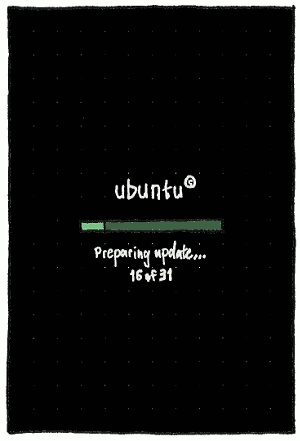 ubuntu
Preparing update...
16 of 31